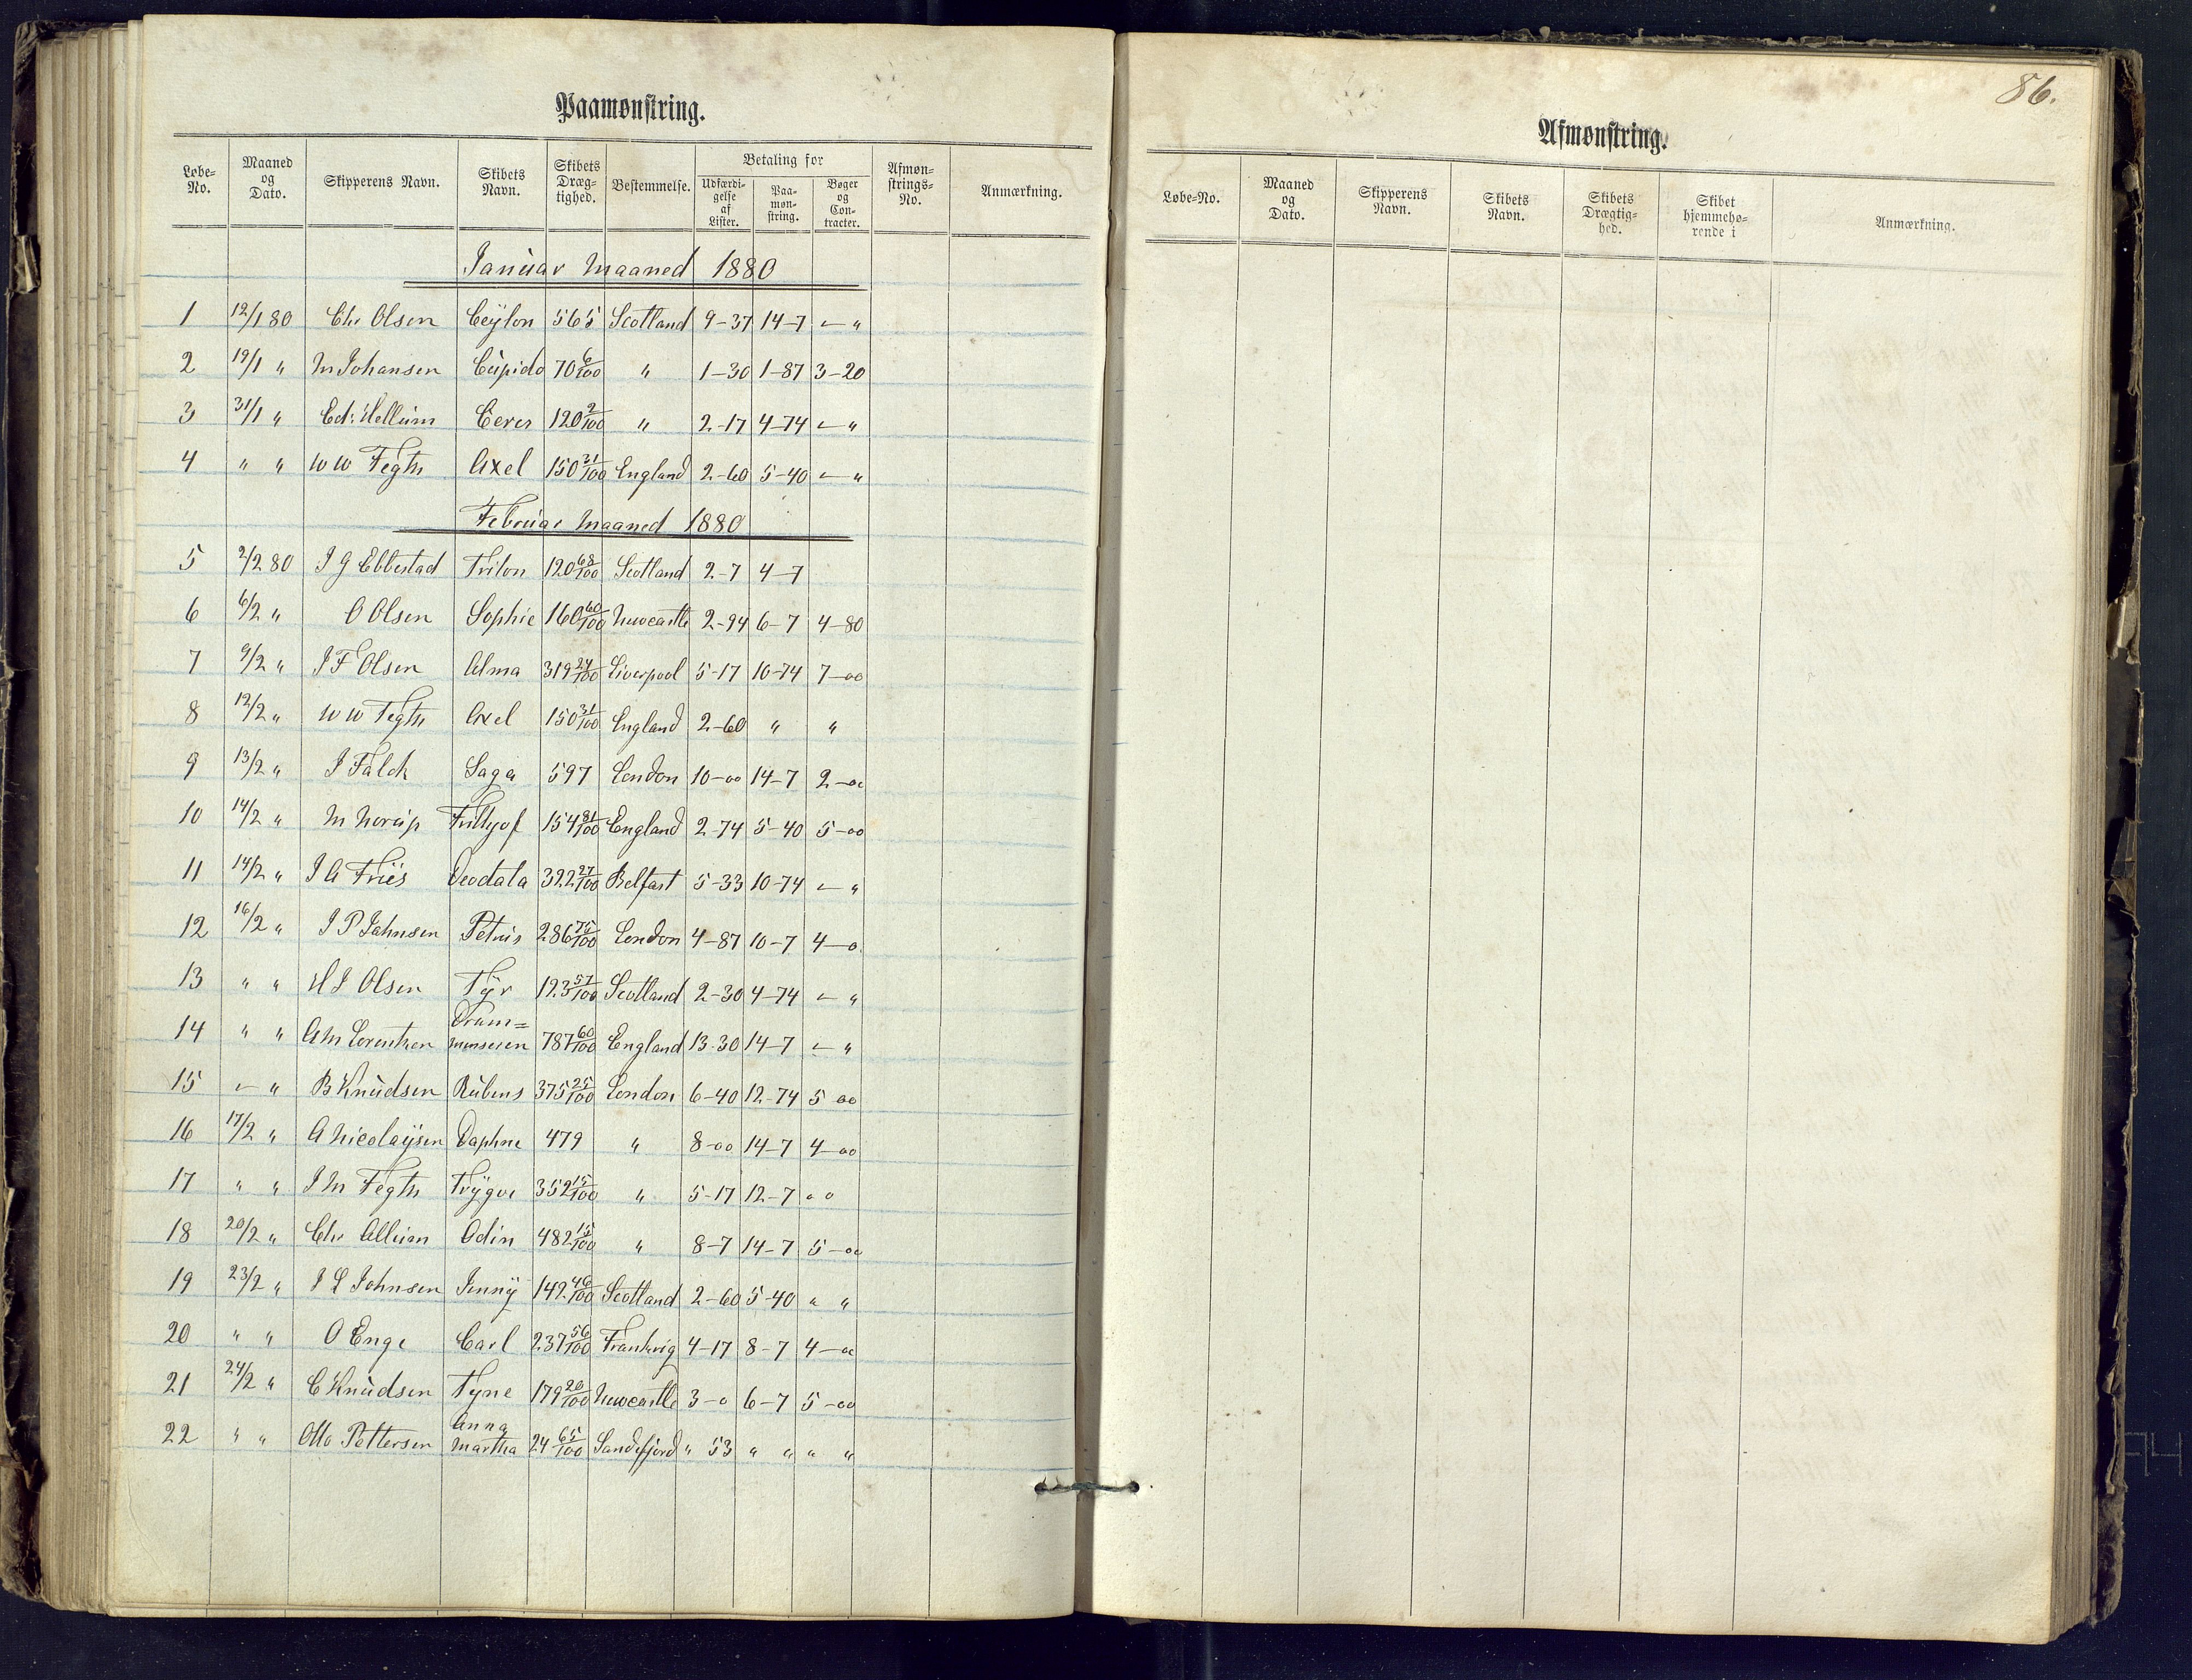 Paamønstring.
Løbe-No. Maaned og Dato. Skipperens Navn. Skibets Navn. Skibets Dræg-tighed. Bestemmelse. Betaling for Udfærdi-gelse af Lister. Paa-møn-string. Bøger og Con-tracter. Afmøn-strings-No. Anmærkning.
Januar Maaned 1880
1 12/1 80 Chr Olsen Ceylon 565 Scotland 9-37 14-7 " "
2 19/1 " M Johansen Cupido 70 6/100 " 1-30 1-87 3-20
3 31/1 " Ed. Hellum Ceres 120 2/100 " 2-17 4-74 " "
4 " " W W Fegth Axel 150 31/100 England 2-60 5-40 " "
Februar Maaned 1880
5 2/2 80 J G Ebbestad Triton 120 68/100 Scotland 2-7 4-7
6 6/2 " O Olsen Sophie 160 60/100 Newcastle 2-94 6-7 4-80
7 9/2 " J F Olsen Alma 319 24/100 Liverpool 5-17 10-74 7-00
8 12/2 " W W Fegth Axel 150 31/100 England 2-60 " "
9 13/2 " J Falck Saga 597 London 10-00 14-7 2-00
10 14/2 " M Norup Frithjof 154 81/100 England 2-74 5-40 5-00
11 14/2 " J A Friis Deodata 322 27/100 Belfast 5-33 10-74 " "
12 16/2 " J P Jahnsen Petrus 286 75/100 London 4-87 10-7 4-0
13 " " H J Olsen Tyr 123 57/100 Scotland 2-30 4-74 " "
14 " " A M Lorentzen Dram=menseren 787 60/100 England 13-30 14-7 " "
15 " " B Knudsen Rubens 375 25/100 London 6-40 12-74 5 00
16 17/2 " A Nicolaysen Daphne 479 " 8-00 14-7 4-00
17 " " J M Fegth Trygve 352 15/100 " 5-17 12-7 " "
18 20/2 " Chr Allum Odin 482 15/100 " 8-7 14-7 5-00
19 23/2 " J L Johnsen Jenny 142 46/100 Scotland 2-60 5-40 " "
20 " " O Enge Carl 237 56/100 Frankrig 4-17 8-7 4-00
21 24/2 " C Knudsen Tyne 179 20/100 Newcastle 3-0 6-7 5-00
22 " " Otto Pettersen Anna Martha 24 65/100 Sandefjord " 53 " " " "
86.
Afmønstring.
Løbe-No. Maaned og Dato. Skipperens Navn. Skibets Navn. Skibets Drægtig-hed. Skibet hjemmehø-rende i Anmærkning.